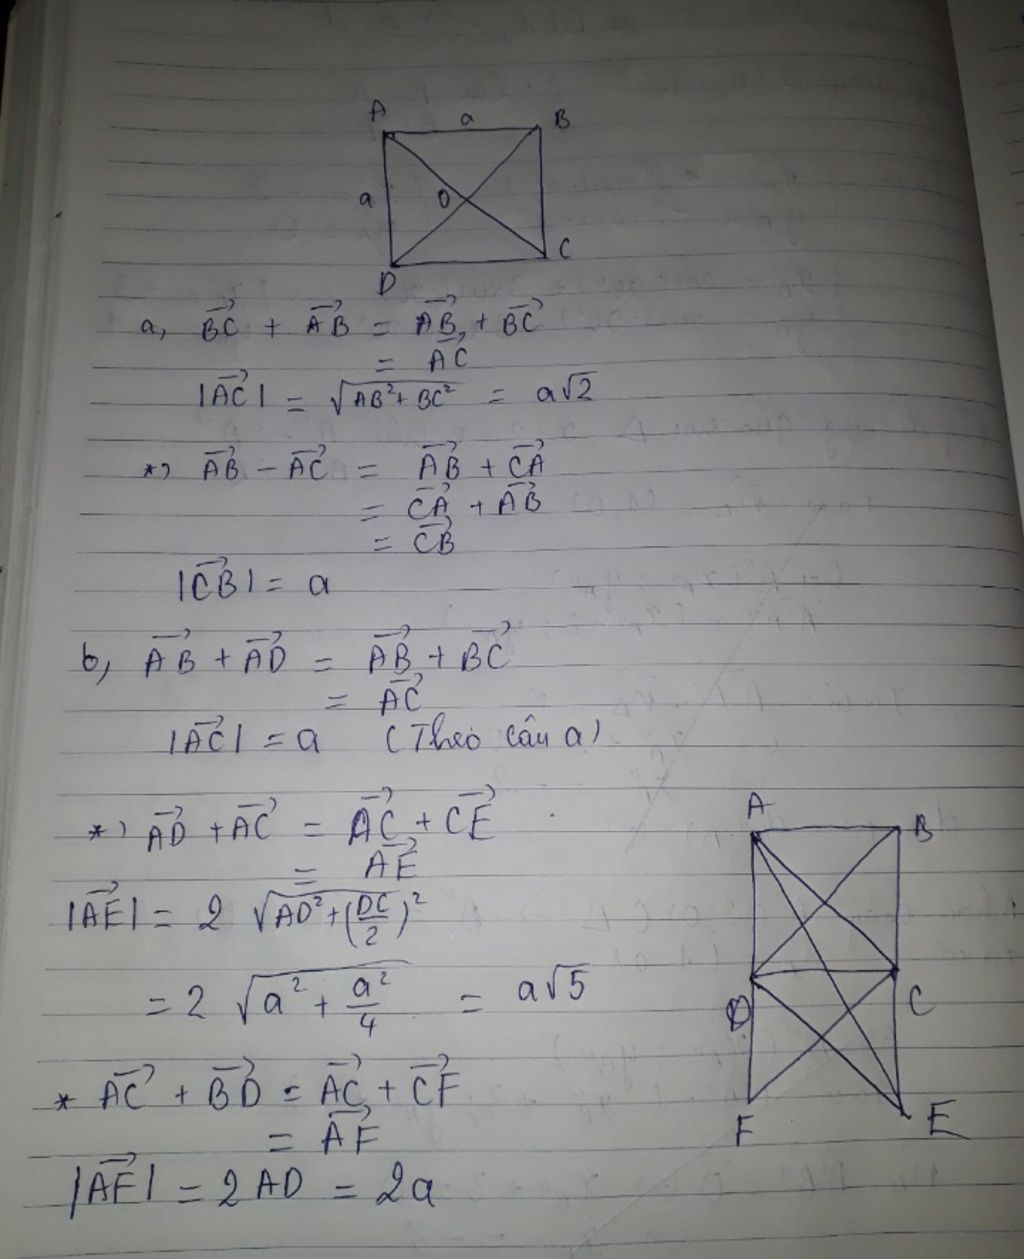 A a B
a O
D C
a, \overrightarrow{BC} + \overrightarrow{AB} = \overrightarrow{AB} + \overrightarrow{BC}
= \overrightarrow{AC}
|\overrightarrow{AC}| = \sqrt{AB² + BC²} = a√2
*) \overrightarrow{AB} - \overrightarrow{AC} = \overrightarrow{AB} + \overrightarrow{CA}
= \overrightarrow{CA} + \overrightarrow{AB}
= \overrightarrow{CB}
|\overrightarrow{CB}| = a
b, \overrightarrow{AB} + \overrightarrow{AD} = \overrightarrow{AB} + \overrightarrow{BC}
= \overrightarrow{AC}
|\overrightarrow{AC}| = a (Theo câu a)
*) \overrightarrow{AD} + \overrightarrow{AC} = \overrightarrow{AC} + \overrightarrow{CE}
= \overrightarrow{AE}
|\overrightarrow{AE}| = 2 \sqrt{AD² + (\frac{DC}{2})²}
= 2 \sqrt{a² + \frac{a²}{4}} = a√5
* \overrightarrow{AC} + \overrightarrow{BD} = \overrightarrow{AC} + \overrightarrow{CF}
= \overrightarrow{AF}
|\overrightarrow{AF}| = 2AD = 2a
A B
D C
F E